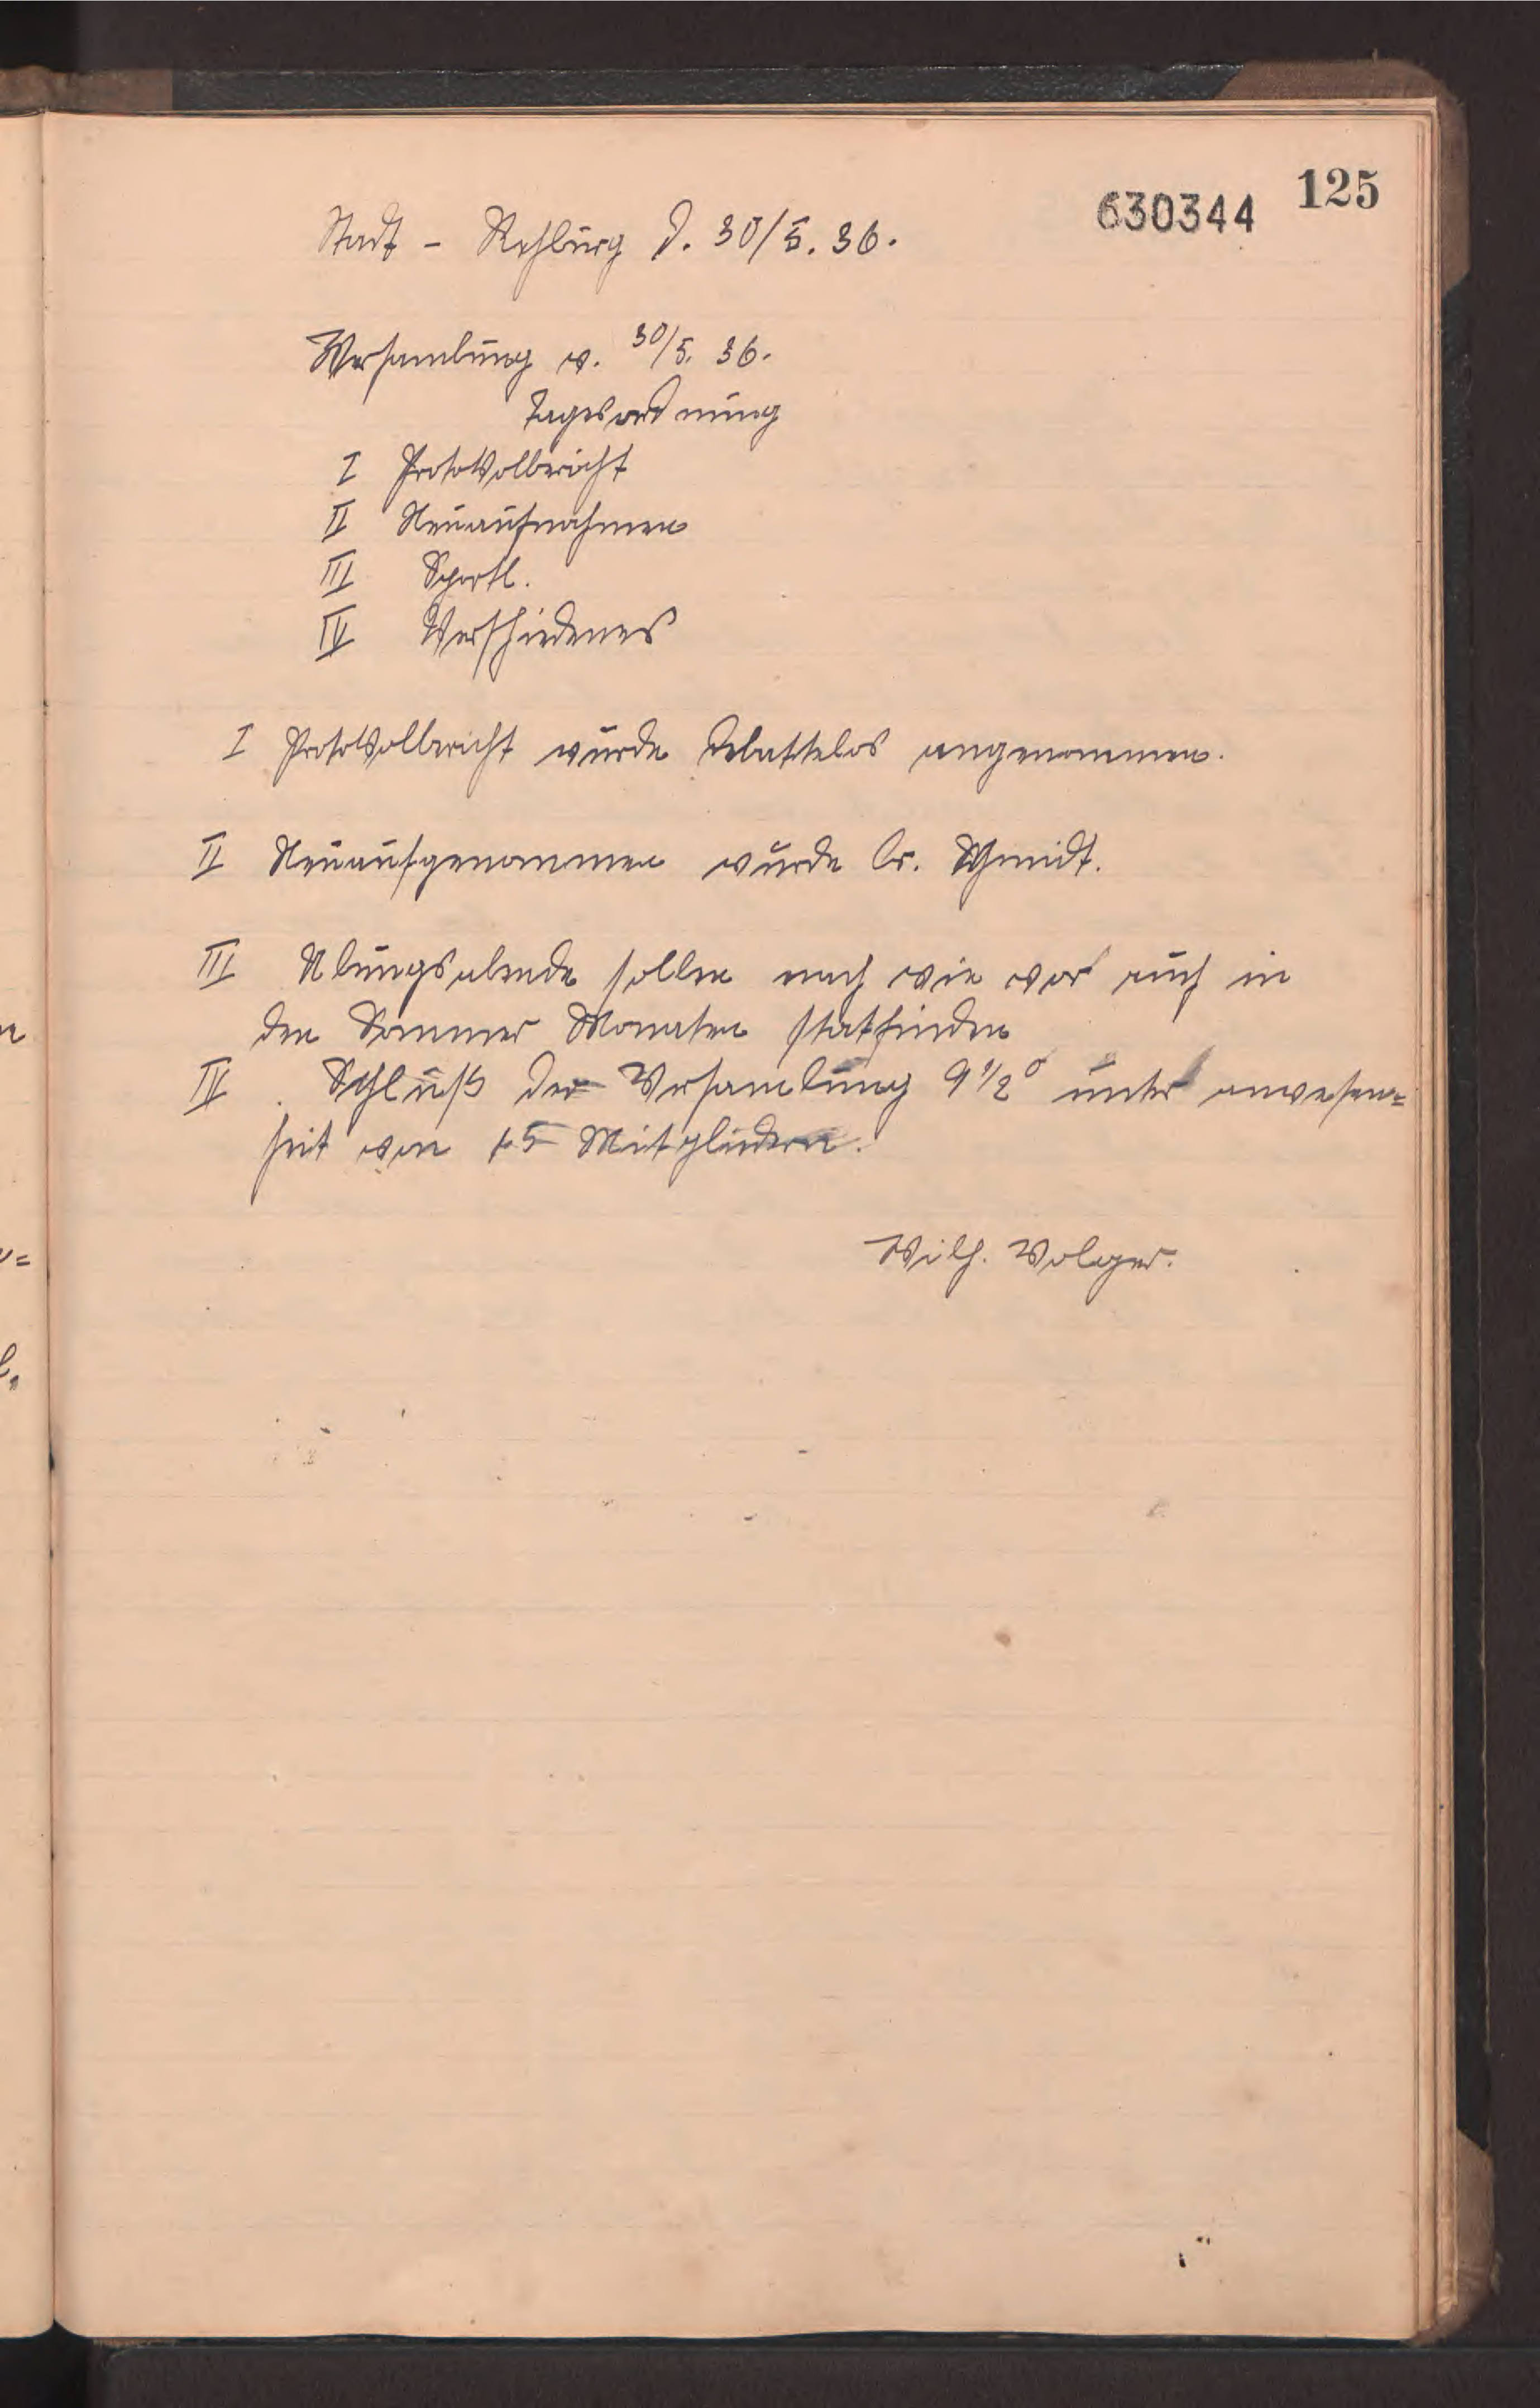 630344 125
Stadt - Rehburg d. 30/5. 36.
Versamlung v. 30/5. 36.
Tagesordnung
I Protokolbericht
II Neuaufnahmen
III Sportl.
IV Verschiedenes
I Protokolbericht wurde debattelos angenommen.
II Neuaufgenommen wurde Schmidt.
III Übungsabende sollen nach wie vor auch in
den Sommer Monaten statfinden
IV Schluß der Versamlung 9 1/2 unter anwesen=
heit von 15 Mitgliedern.
Wilh. Volger.